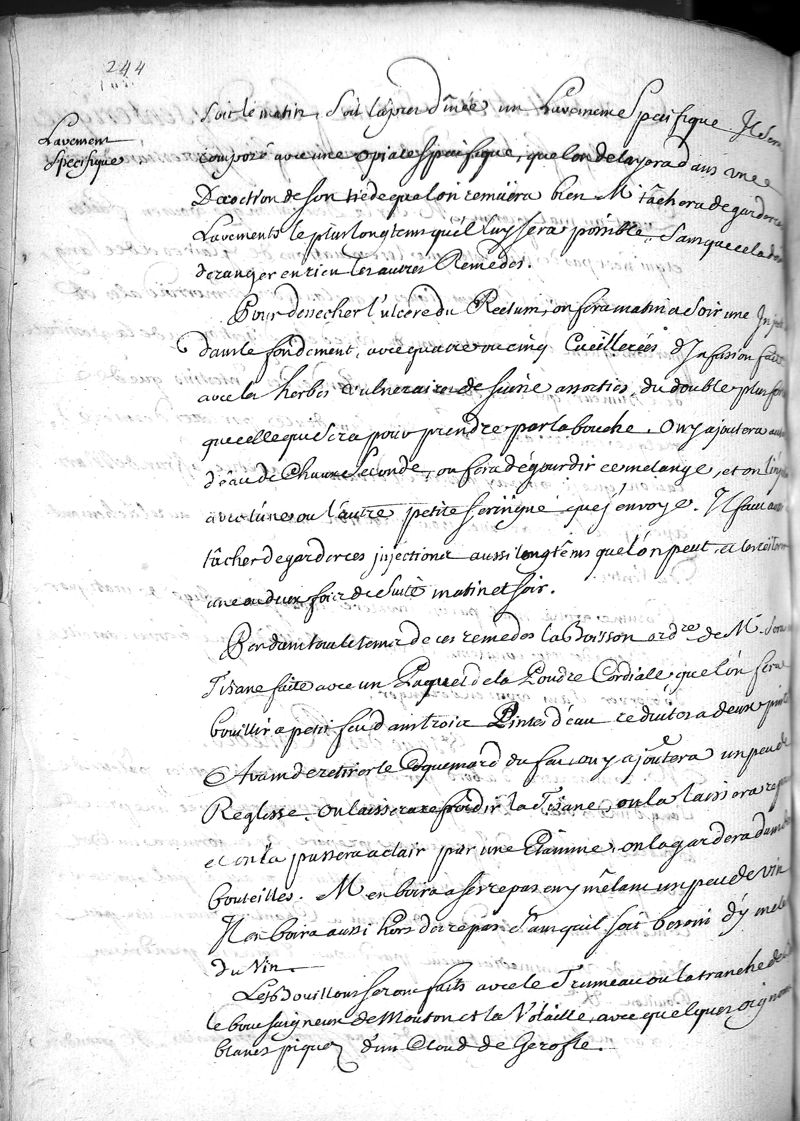 244
Lavement
Specifique
Soit le matin, Soit l'apres dînée un Lavement Specifique Il sera
composé avec une opiate Specifique, que l'on delayera dans une
Decoction de son tiede que l'on remuëra bien M. tâchera de garder ce
Lavement le plus longtems quil luy sera possible, Sans que cela
deranger en rien les autres Remedes.
Pour dessecher l'ulcere du Rectum, on fera matin a Soir une
dans le fondement, avec quatre ou cinq Cueillerées d'Infasion
avec les herbes vulneraires de suisse assorties, du double plus
que celle qui sera pour prendre par la bouche. On y ajoutera
d'eau de Chaux Seconde, on fera dégourdir ce melange, et on
avec l'une ou l'autre petite seringue que j'envoye. Il faut
tâcher de garder ces injections aussi longtêms que l'ôn peut, et
une ou deux fois de Suitte matin et soir.
Pendant tout le tems de ces remedes la Boisson ordre de M. Sera
Tisane faite avec un Paquet de la Poudre Cordiale que l'ôn fera
bouillir a petit feu dans trois Pintes d'eau reduites a deux
Avant de retirer le Coquemard du feu on y ajoûtera un peu de
Reglisse. On laissera refroidir la Tisane, on la laissera
et on la passera a clair par une Etamine, on la gardera dans
bouteilles. M. en boira a ses repas en y mêlant un peu de vin
Il en boira aussi hors des repas Sans quil soit besoin d'y
du Vin.
Les Bouillons seront faits avec le Trumeau ou la tranche de
le bout saigneux de Mouton et la Volaille, avec quelques oignons
blancs piquez d'un Cloud de Gerofle.